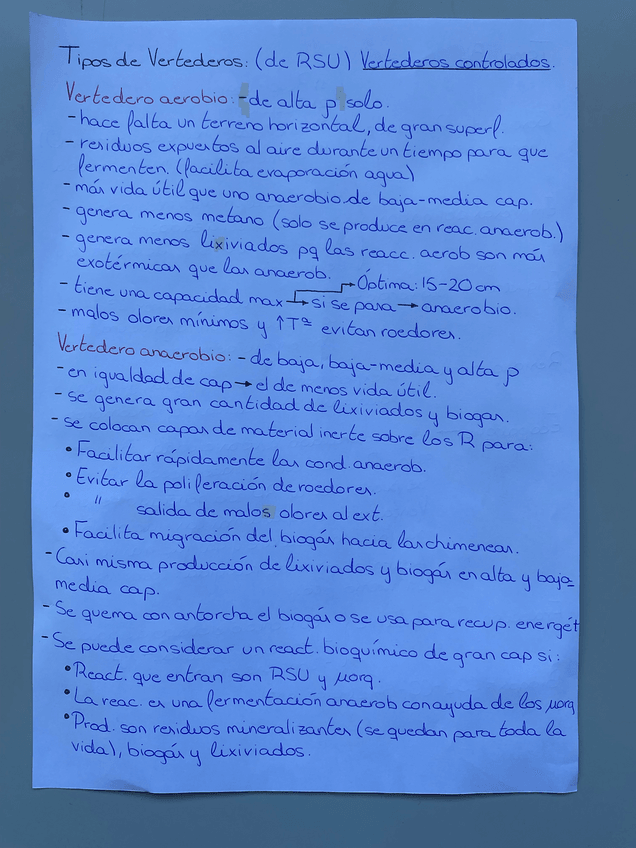 Tipos de Vertederos: (de RSU) Vertederos controlados.
Vertedero aerobio: - de alta ρ solo.
- hace falta un terreno horizontal, de gran superf.
- residuos expuestos al aire durante un tiempo para que
fermenten. (facilita evaporación agua)
- más vida útil que uno anaerobio de baja-media cap.
- genera menos metano (solo se produce en reac. anaerob.)
- genera menos lixiviados pq las reacc. aerob son más
exotérmicas que las anaerob.
→ Óptima: 15-20 cm
- tiene una capacidad max → si se pasa → anaerobio.
- malos olores mínimos y ↑Tª evitan roedores.
Vertedero anaerobio: - de baja, baja-media y alta ρ
- en igualdad de cap → el de menos vida útil.
- se genera gran cantidad de lixiviados y biogas.
- se colocan capas de material inerte sobre los R para:
• Facilitar rápidamente las cond. anaerob.
• Evitar la poliferación de roedores.
• " salida de malos olores al ext.
• Facilita migración del biogás hacia las chimeneas.
- Casi misma producción de lixiviados y biogás en alta y baja-
media cap.
- Se quema con antorcha el biogás o se usa para recup. energét
- Se puede considerar un react. bioquímico de gran cap si:
• React. que entran son RSU y μorg.
• La reac. es una fermentación anaerob con ayuda de los μorg
• Prod. son residuos mineralizantes (se quedan para toda la
vida), biogás y lixiviados.